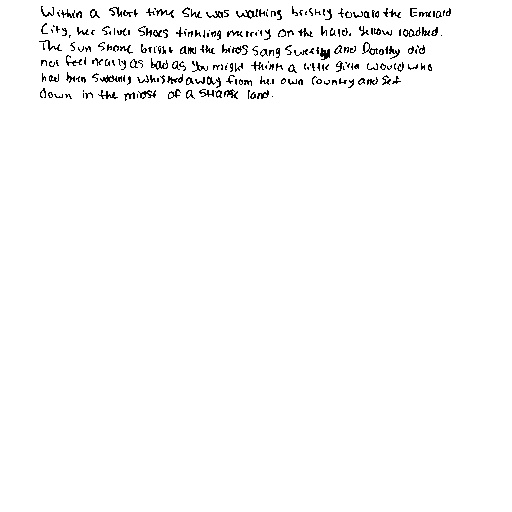 Within a short time she was walking briskly toward the Emerald
City, her Silver Shoes tinkling merrily on the hard, yellow roadbed.
The sun shone bright and the birds sang sweetly and Dorothy did
not feel nearly as bad as you might think a little girl would who
had been suddenly whisked away from her own country and set
down in the midst of a strange land.